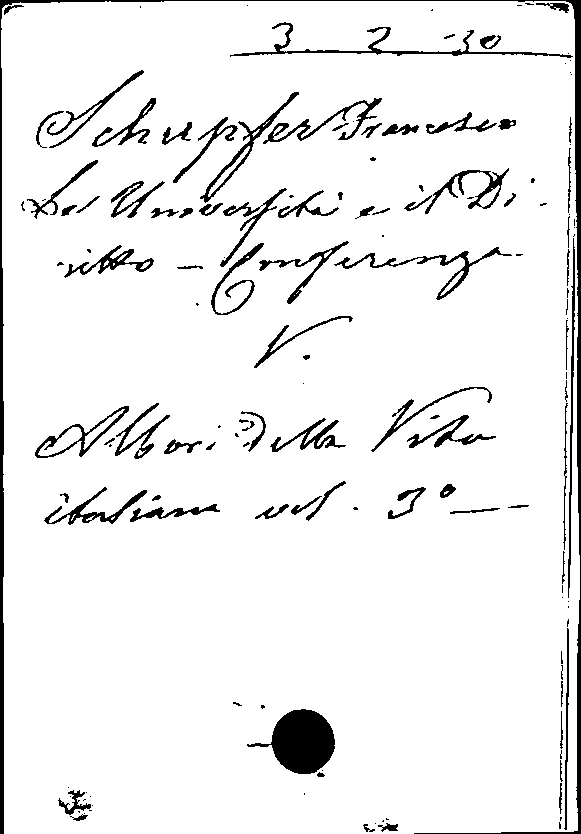 3. 2. 30
Schupfer Francesco
Le Università e il Di-
ritto – Conferenza
V.
Albori della Vita
italiana vol. 3º —